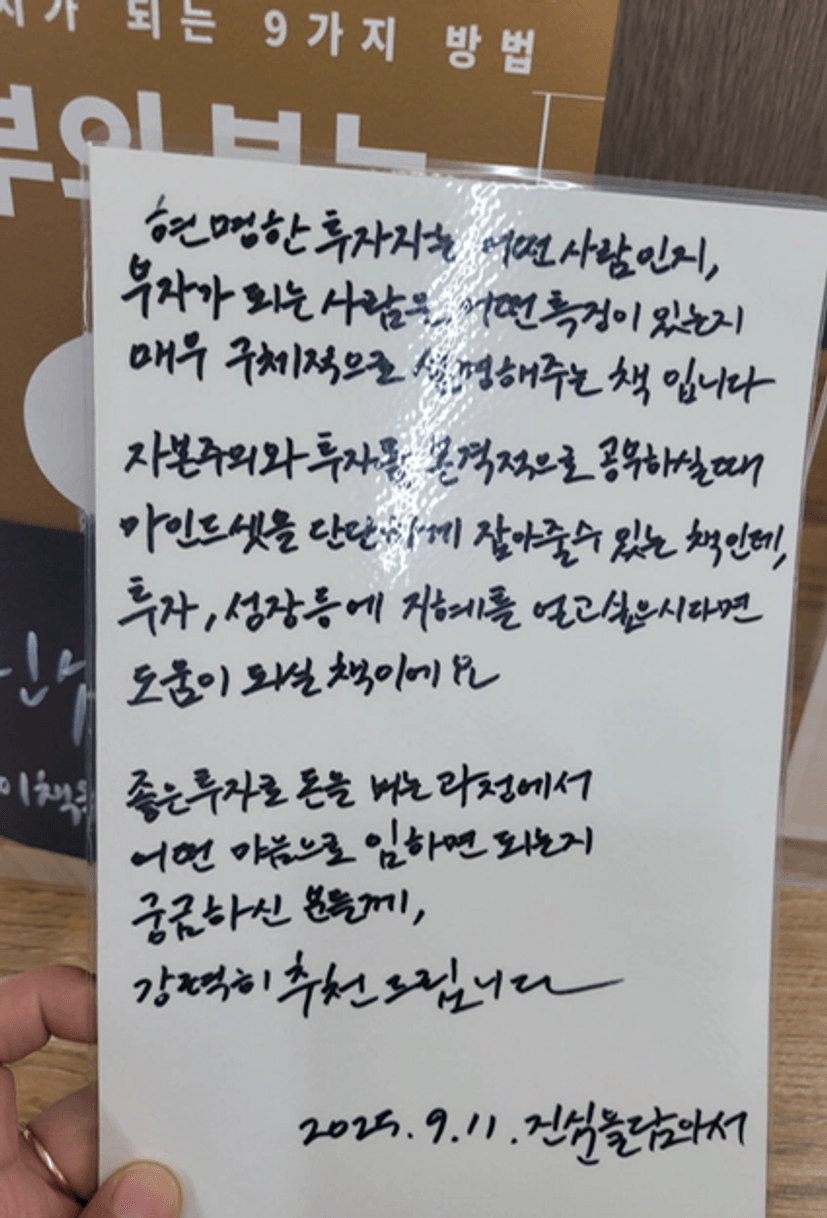 가 되는 9가지 방법
부의 본능
현명한 투자자는 어떤 사람인지,
부자가 되는 사람은 어떤 특징이 있는지
매우 구체적으로 설명해주는 책 입니다
자본주의와 투자를 본격적으로 공부하실때
마인드셋을 단단하게 잡아줄수 있는 책인데,
투자, 성장등에 지혜를 얻고싶으시다면
도움이 되실 책이에요
좋은투자로 돈을 버는 과정에서
어떤 마음으로 임하면 되는지
궁금하신 분들께,
강력히 추천드립니다
2025. 9. 11. 진심을담아서
이책